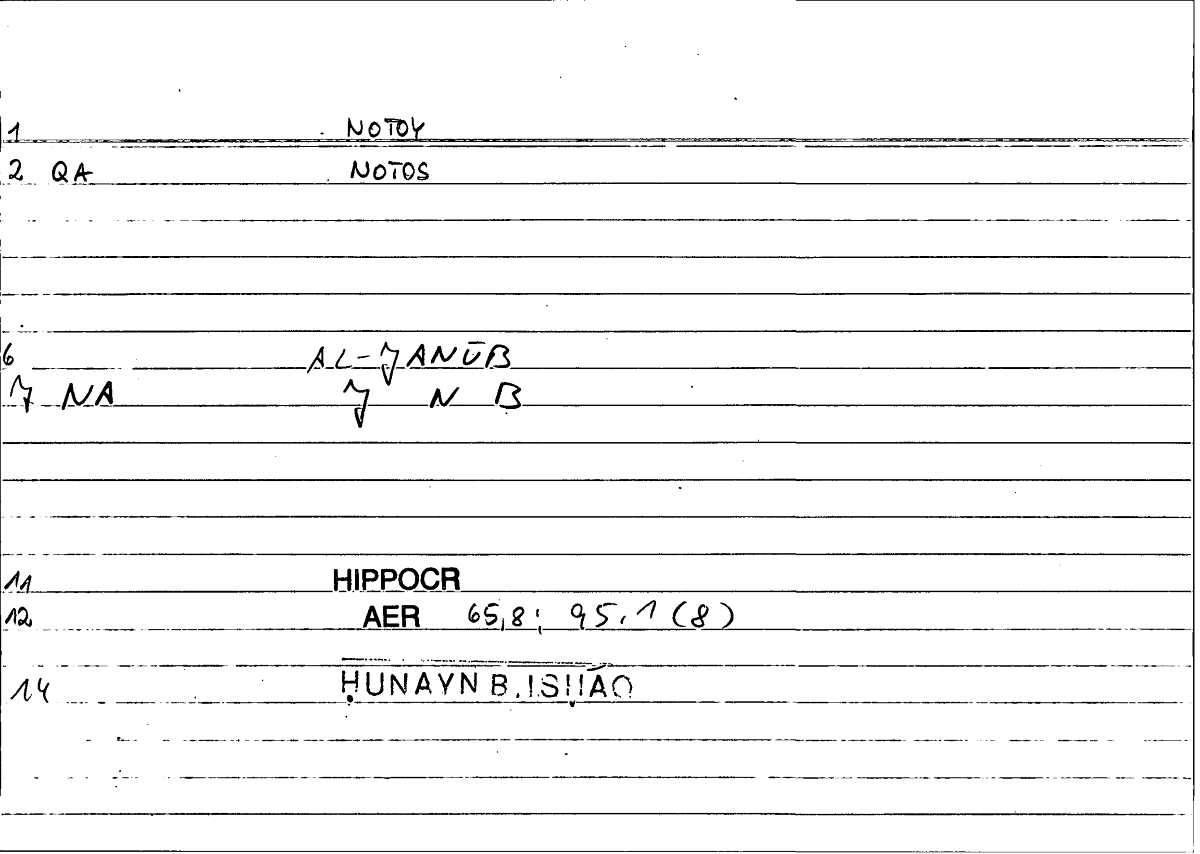 1 NOTOY
2 QA NOTOS
6 AL-JANŪB
J NA J N B
11 HIPPOCR
12 AER 65,8; 95,1 (8)
14 ḤUNAYN B. ISḤĀQ